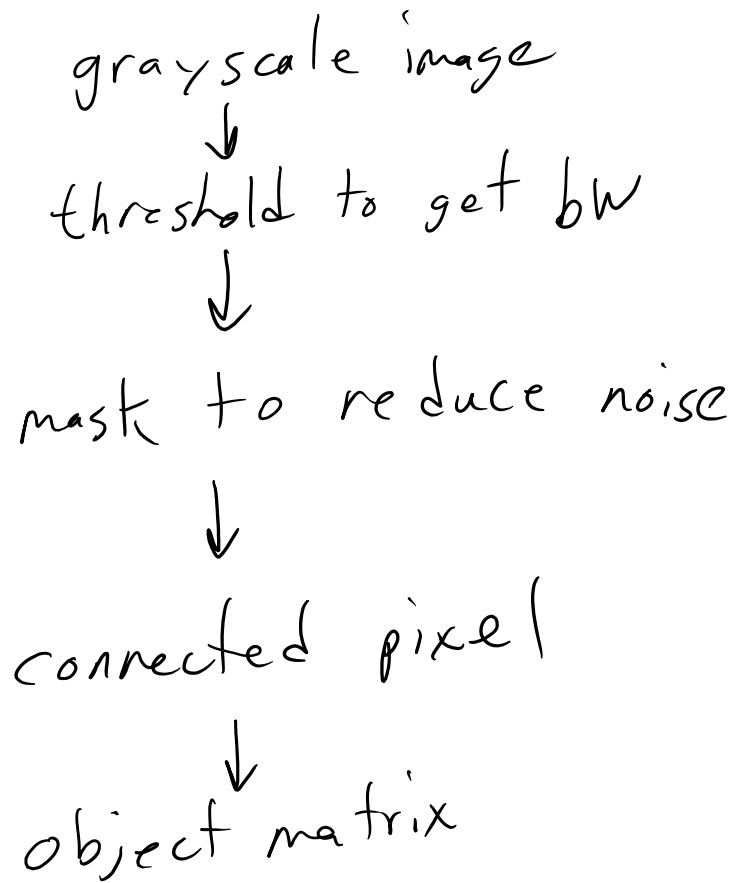 grayscale image
threshold to get bw
mask to reduce noise
connected pixel
object matrix